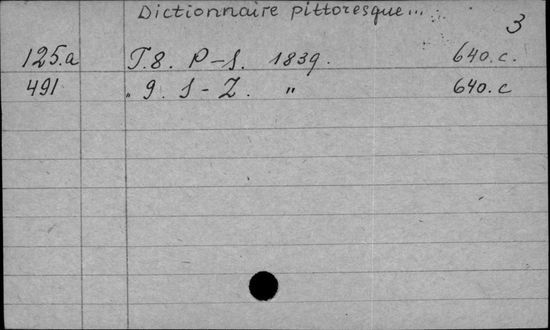 Dictionnaire pittoresque...
3
125.a T.8. P-S. 1839. 640.c.
491 „ 9. S-Z. „ 640.c